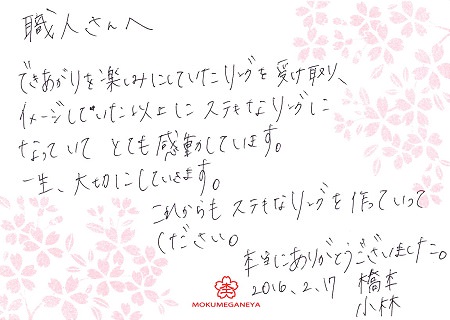 職人さんへ
できあがりを楽しみにしていたリングを受け取り、
イメージしていた以上に ステキなリングに
なっていて とても感動しています。
一生、大切にしていきます。
これからも ステキなリングを作っていって
ください。
本当にありがとうございました。
2016.2.17 橋本
小林
MOKUMEGANEYA